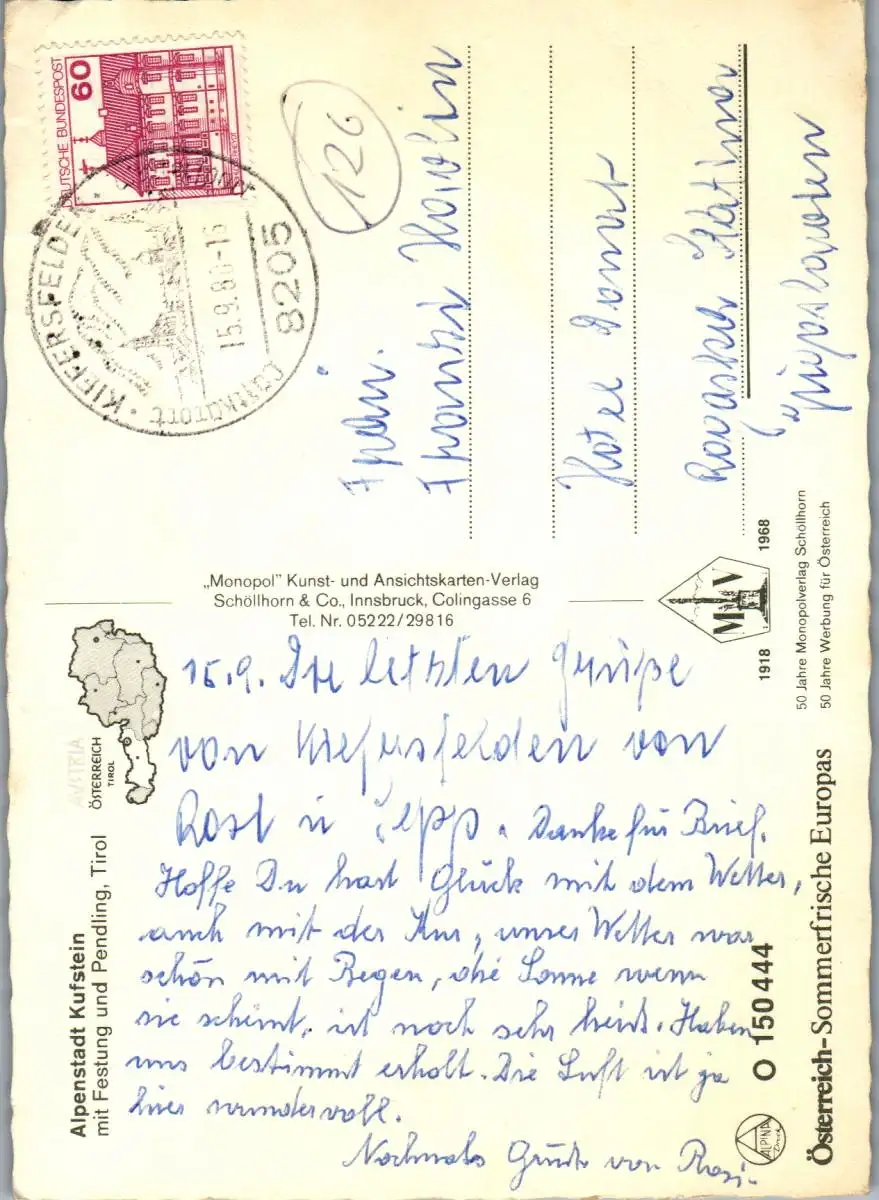 Alpenstadt Kufstein
mit Festung und Pendling, Tirol
AUSTRIA
ÖSTERREICH
TIROL
15.9. Die letzten Grüße
von Kiefersfelden von
Rosl u Sepp. Danke für Brief.
Hoffe Du hast Glück mit dem Wetter,
auch mit der Kur, unser Wetter war
schön mit Regen, die Sonne wenn
sie scheint, ist noch sehr heiß. Haben
uns bestimmt erholt. Die Luft ist ja
hier wundervoll.
Nochmals Grüße von Rosi.
ALPINA
Druck
O 150 444
Österreich-Sommerfrische Europas
„Monopol” Kunst- und Ansichtskarten-Verlag
Schöllhorn & Co., Innsbruck, Colingasse 6
Tel. Nr. 05222/29816
1918 MV 1968
50 Jahre Monopolverlag Schöllhorn
50 Jahre Werbung für Österreich
DEUTSCHE BUNDESPOST
60
KIEFERSFELDEN
Luftkurort
15.9.80-16
8205
126
Frau
Hotel Donat
Rogaška Slatina
Jugoslavien